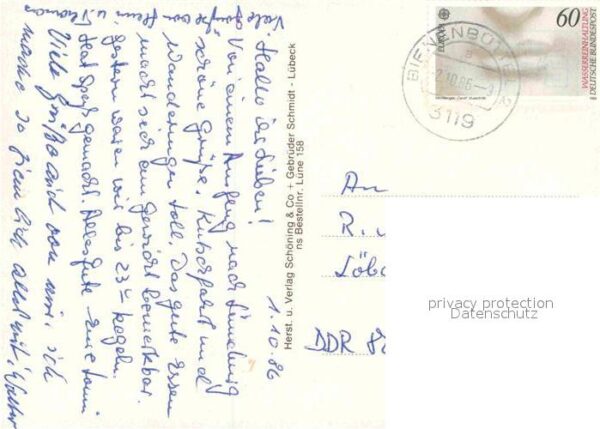 1.10.86
Hallo ihr Lieben!
Von einem Ausflug nach Lüneburg
schöne Grüße. Kutschfahrt und
Wanderungen toll. Das gute Essen
macht sich am Gewicht bemerkbar.
gestern waren wir bis 23 kegeln.
Hat Spaß gemacht. Alles gute Eure
Viele Grüße auch von mir, ich
mache so ziemlich alles mit!
Viele
Herst. u. Verlag Schöning & Co + Gebrüder Schmidt - Lübeck
ns Bestellnr. Lüne 158
EUROPA
60
WASSERREINHALTUNG
DEUTSCHE BUNDESPOST
BIENENBÜTTEL 2
3119
An
R.
Löba
DDR
privacy protection
Datenschutz